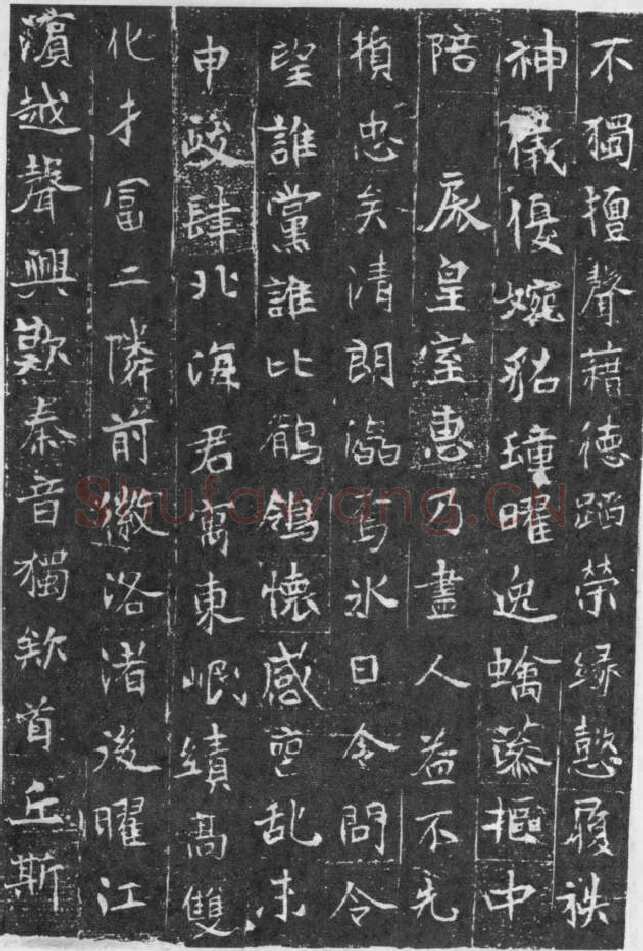 不獨擅聲藉德蹈榮緣懿履袟
神儀優婉曜逸中
陪 扆皇室惠乃盡人益不先
損忠矣清朗冰日令問令
望誰黨誰比鶺鴒懷感乱未
申肆北海君寓東岷績高雙
化才冨二隣前徽洛渚後曜江
濱越聲興歎秦音獨欵首丘斯
Shufawang.CN